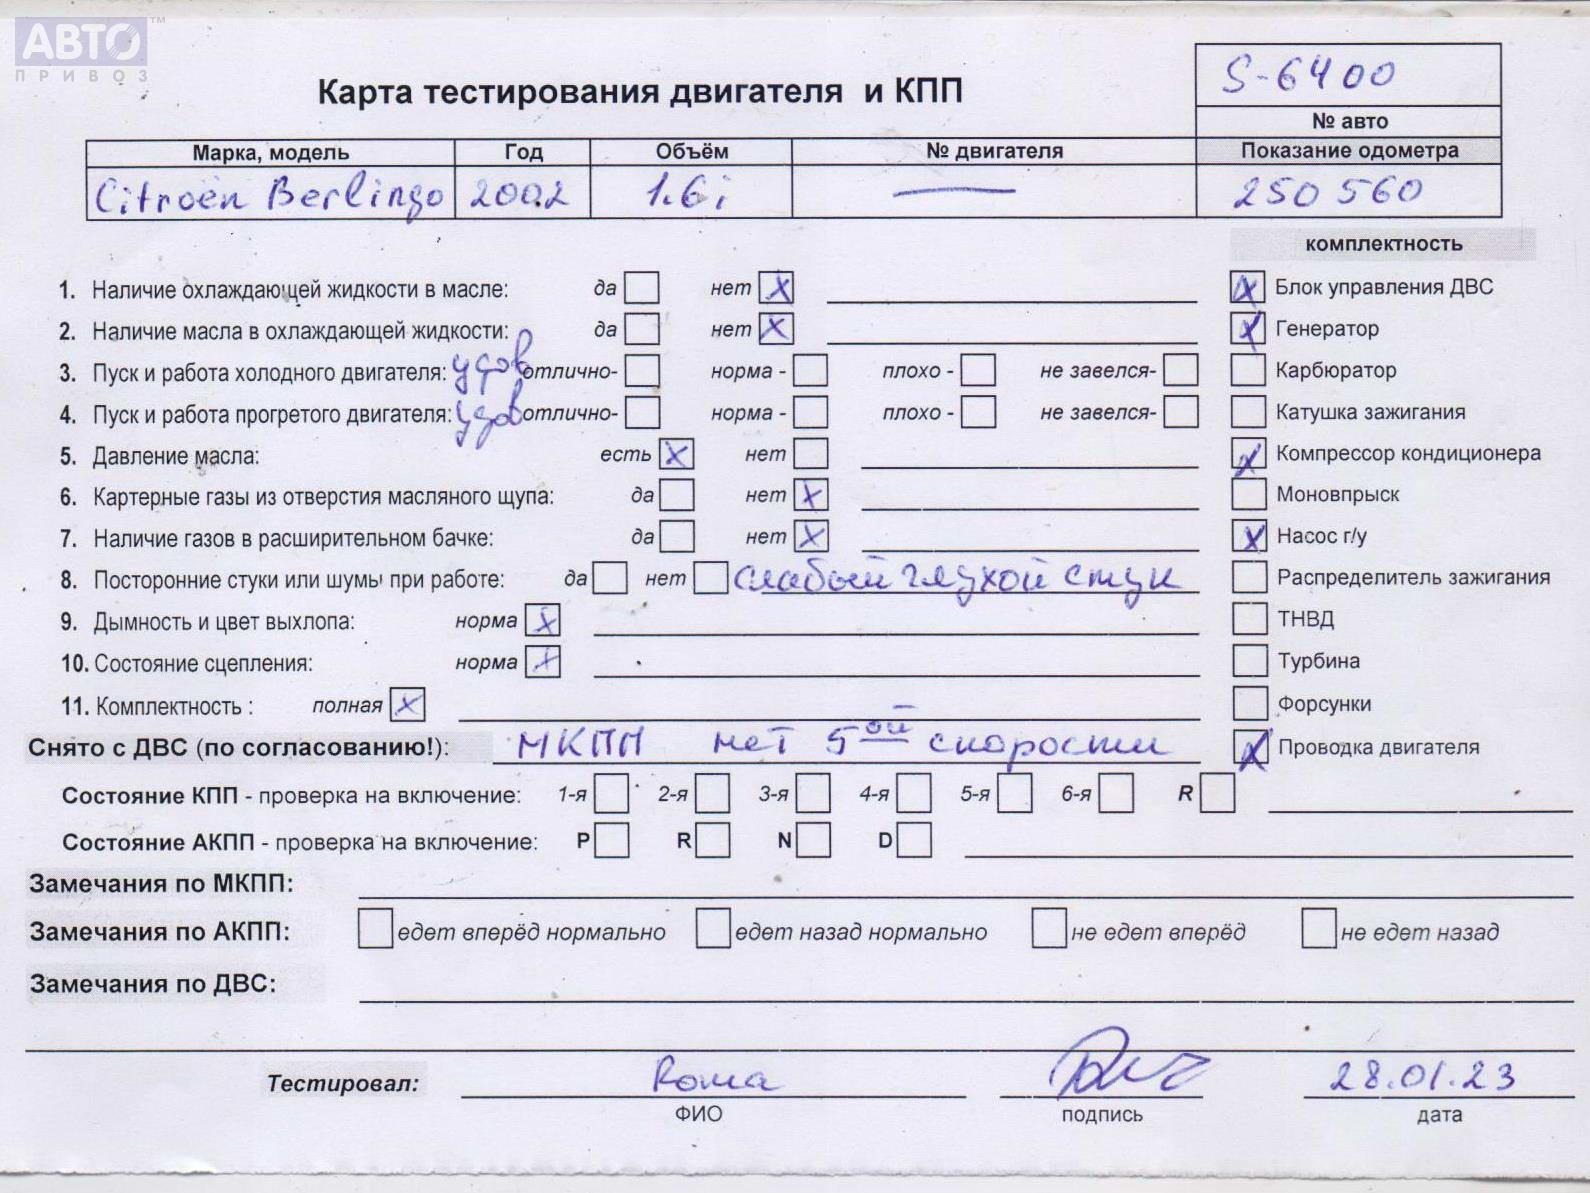 АВТО™
ПРИВОЗ
S-6400
Карта тестирования двигателя и КПП
№ авто
Марка, модель Год Объём № двигателя Показание одометра
Citroën Berlingo 2002 1.6i — 250 560
комплектность
1. Наличие охлаждающей жидкости в масле: да нет x Блок управления ДВС
2. Наличие масла в охлаждающей жидкости: да нет x Генератор
3. Пуск и работа холодного двигателя: удов отлично- норма - плохо - не завелся- Карбюратор
4. Пуск и работа прогретого двигателя: удов отлично- норма - плохо - не завелся- Катушка зажигания
5. Давление масла: есть x нет Компрессор кондиционера
6. Картерные газы из отверстия масляного щупа: да нет x Моновпрыск
7. Наличие газов в расширительном бачке: да нет x Насос г/у
8. Посторонние стуки или шумы при работе: да нет слабый глухой стук Распределитель зажигания
9. Дымность и цвет выхлопа: норма x ТНВД
10. Состояние сцепления: норма x Турбина
11. Комплектность : полная x Форсунки
Снято с ДВС (по согласованию!): МКПП нет 5ой скорости Проводка двигателя
Состояние КПП - проверка на включение: 1-я 2-я 3-я 4-я 5-я 6-я R
Состояние АКПП - проверка на включение: P R N D
Замечания по МКПП:
Замечания по АКПП: едет вперёд нормально едет назад нормально не едет вперёд не едет назад
Замечания по ДВС:
Тестировал: Рома 28.01.23
ФИО подпись дата